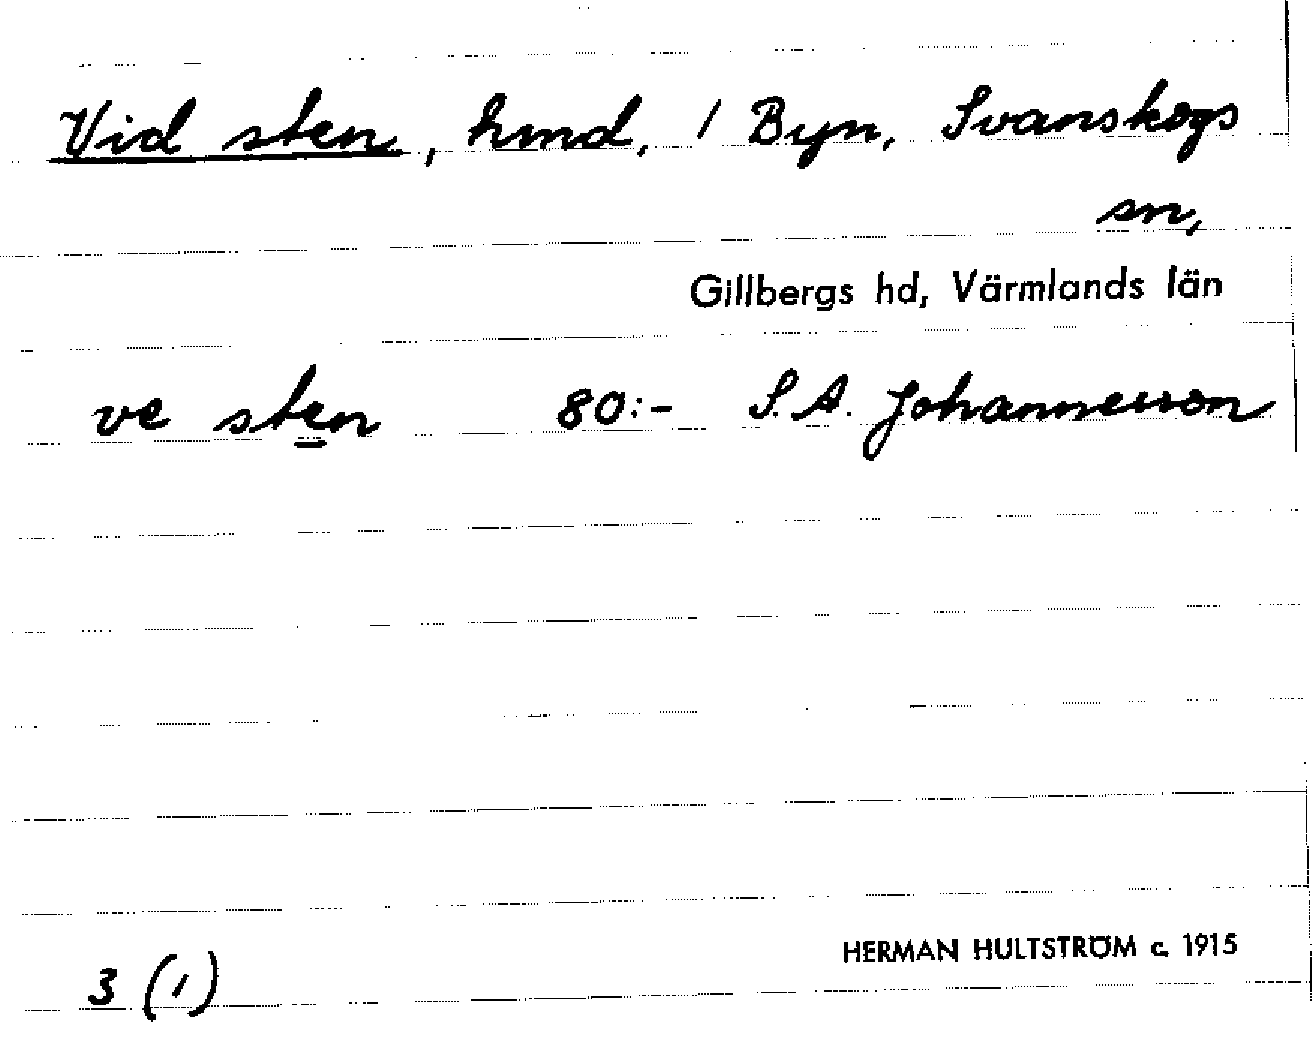 Vid sten, hmd, 1 Byn, Svanskogs
sn,
Gillbergs hd, Värmlands län
ve sten 80:- S.A. Johannesson
HERMAN HULTSTRÖM c. 1915
3 (1)